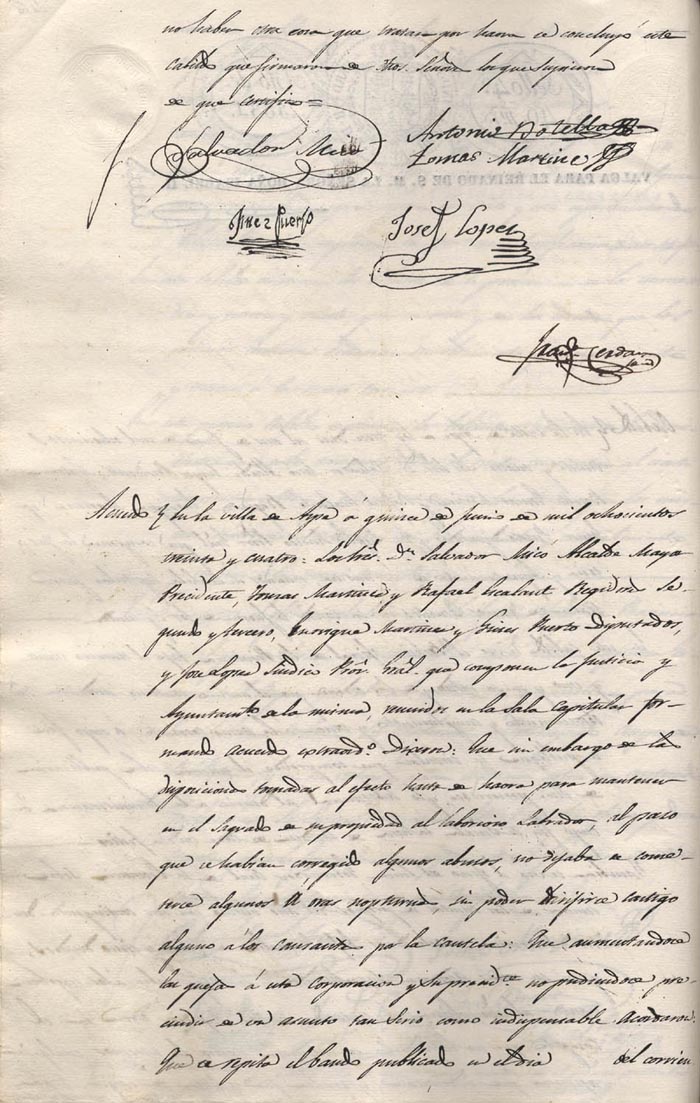 no haber otra cosa que tratar por haora se concluyó este
Cabildo que firmaron se Sres. Señores los que supieron
de que certifico =
Salvador Micó Antonio Botella
Tomas Martinez
Gines Puerto Josef Lopez
Cerdan
Acuerdo } En la villa de Aspe á quince de Junio de mil ochocientos
treinta y cuatro: Los Sres. Dn. Salvador Micó Alcalde Mayor
Presidente, Tomas Martinez y Rafael Escalant Regidores Se-
gundo y tercero, Enrrique Martinez y Gines Puerto Diputados,
y Jose Lopez Sindico Pror. Gral. que componen la Justicia y
Ayuntamto. de la misma, reunidos en la Sala Capitular for-
mando acuerdo extraordo. Dixeron: Que sin embargo de las
disposiciones tomadas al efecto hasta de haora para mantener
en el Sagrado de su propiedad al laborioso Labrador, al paso
que se habian corregido algunos abusos, no dejaba de come-
terce algunos á oras nopturnas, sin poder dirifirce castigo
alguno á los causantes por la cautela: Que aumentandoce
las quejas á esta Corporacion y su presidte. no pudiendoce pre-
cindir de un asunto tan Serio como indispensable acordaron:
Que se repita el bando publicado en el dia del corrien